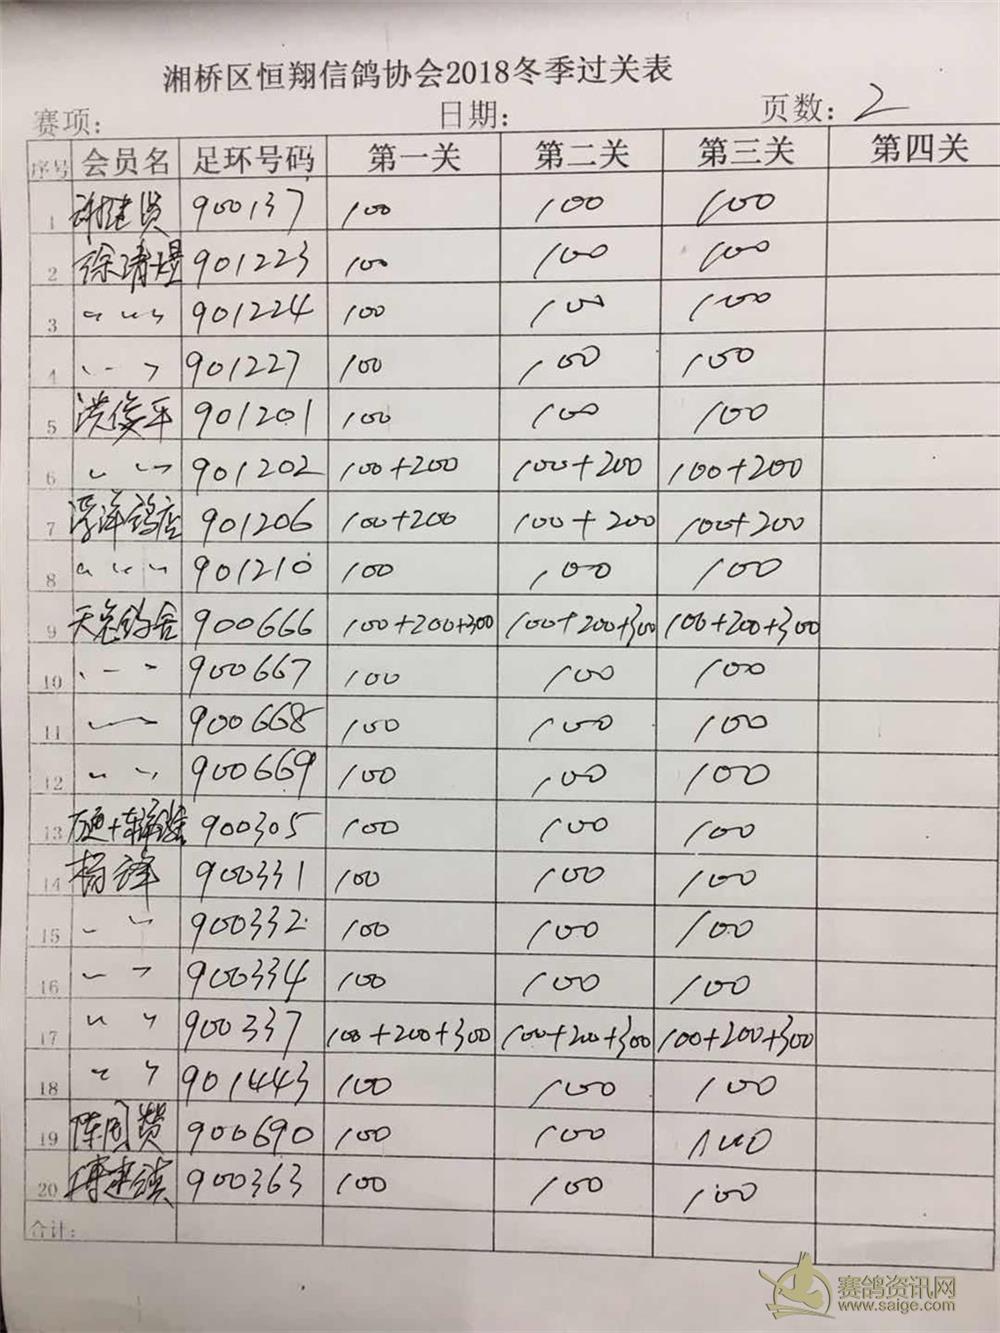 湘桥区恒翔信鸽协会2018冬季过关表
赛项: 日期: 页数: 2
序号 会员名 足环号码 第一关 第二关 第三关 第四关
1 谢建贤 900137 100 100 100
2 徐清煜 901223 100 100 100
3 〃 〃 〃 901224 100 100 100
4 〃 〃 901227 100 100 100
5 洪俊平 901201 100 100 100
6 〃 〃 901202 100+200 100+200 100+200
7 浮洋鸽店 901206 100+200 100+200 100+200
8 〃 〃 〃 901210 100 100 100
9 天宠鸽舍 900666 100+200+300 100+200+300 100+200+300
10 〃 〃 900667 100 100 100
11 〃 〃 900668 100 100 100
12 〃 〃 900669 100 100 100
13 900305 100 100 100
14 杨锋 900331 100 100 100
15 〃 〃 900332 100 100 100
16 〃 〃 900334 100 100 100
17 〃 〃 900337 100+200+300 100+200+300 100+200+300
18 〃 〃 901443 100 100 100
19 陈周赞 900690 100 100 100
20 900363 100 100 100
合计:
赛鸽资讯网
www.saige.com